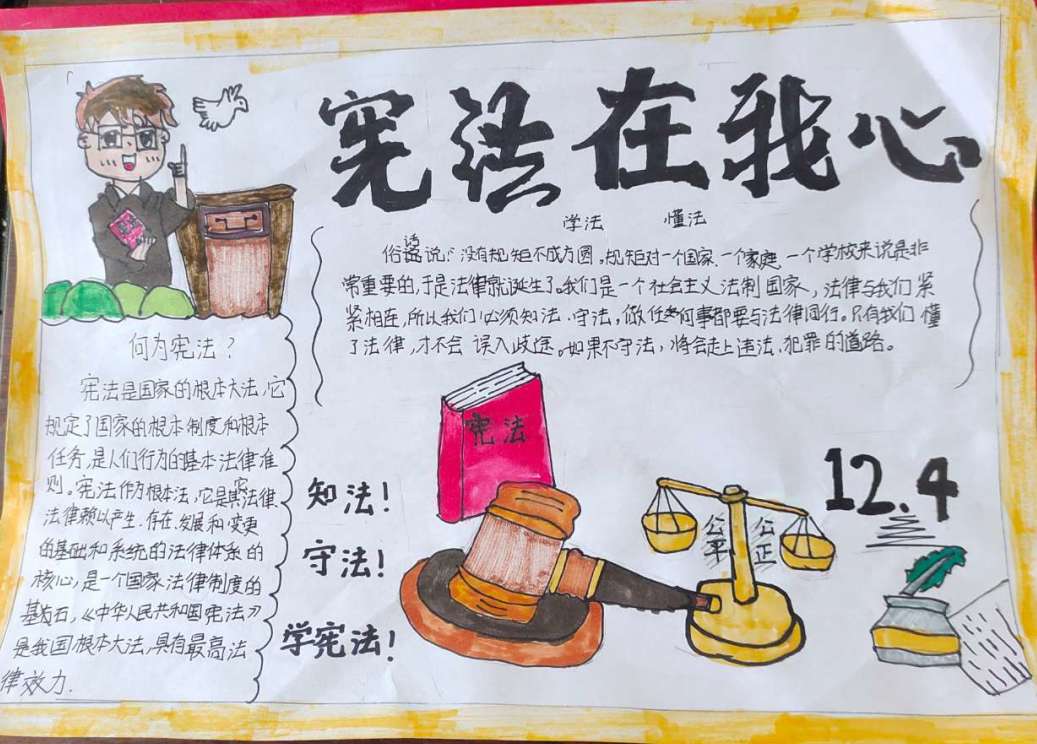 宪法在我心
学法 懂法
俗话说:"没有规矩不成方圆。规矩对一个国家、一个家庭、一个学校来说是非
常重要的,于是法律就诞生了。我们是一个社会主义法制国家,法律与我们紧
紧相连,所以我们必须知法、守法,做任何事都要与法律同行。只有我们懂
了法律,才不会误入歧途。如果不守法,将会走上违法、犯罪的道路。
何为宪法?
宪法是国家的根本大法,它
规定了国家的根本制度和根本
任务,是人们行为的基本法律准
则。宪法作为根本法,它是其它法律、
法律赖以产生、存在、发展和变更
的基础和系统的法律体系的
核心,是一个国家法律制度的
基石,《中华人民共和国宪法》
是我国根本大法,具有最高法
律效力.
知法!
守法!
学宪法!
宪法
公平
公正
12.4